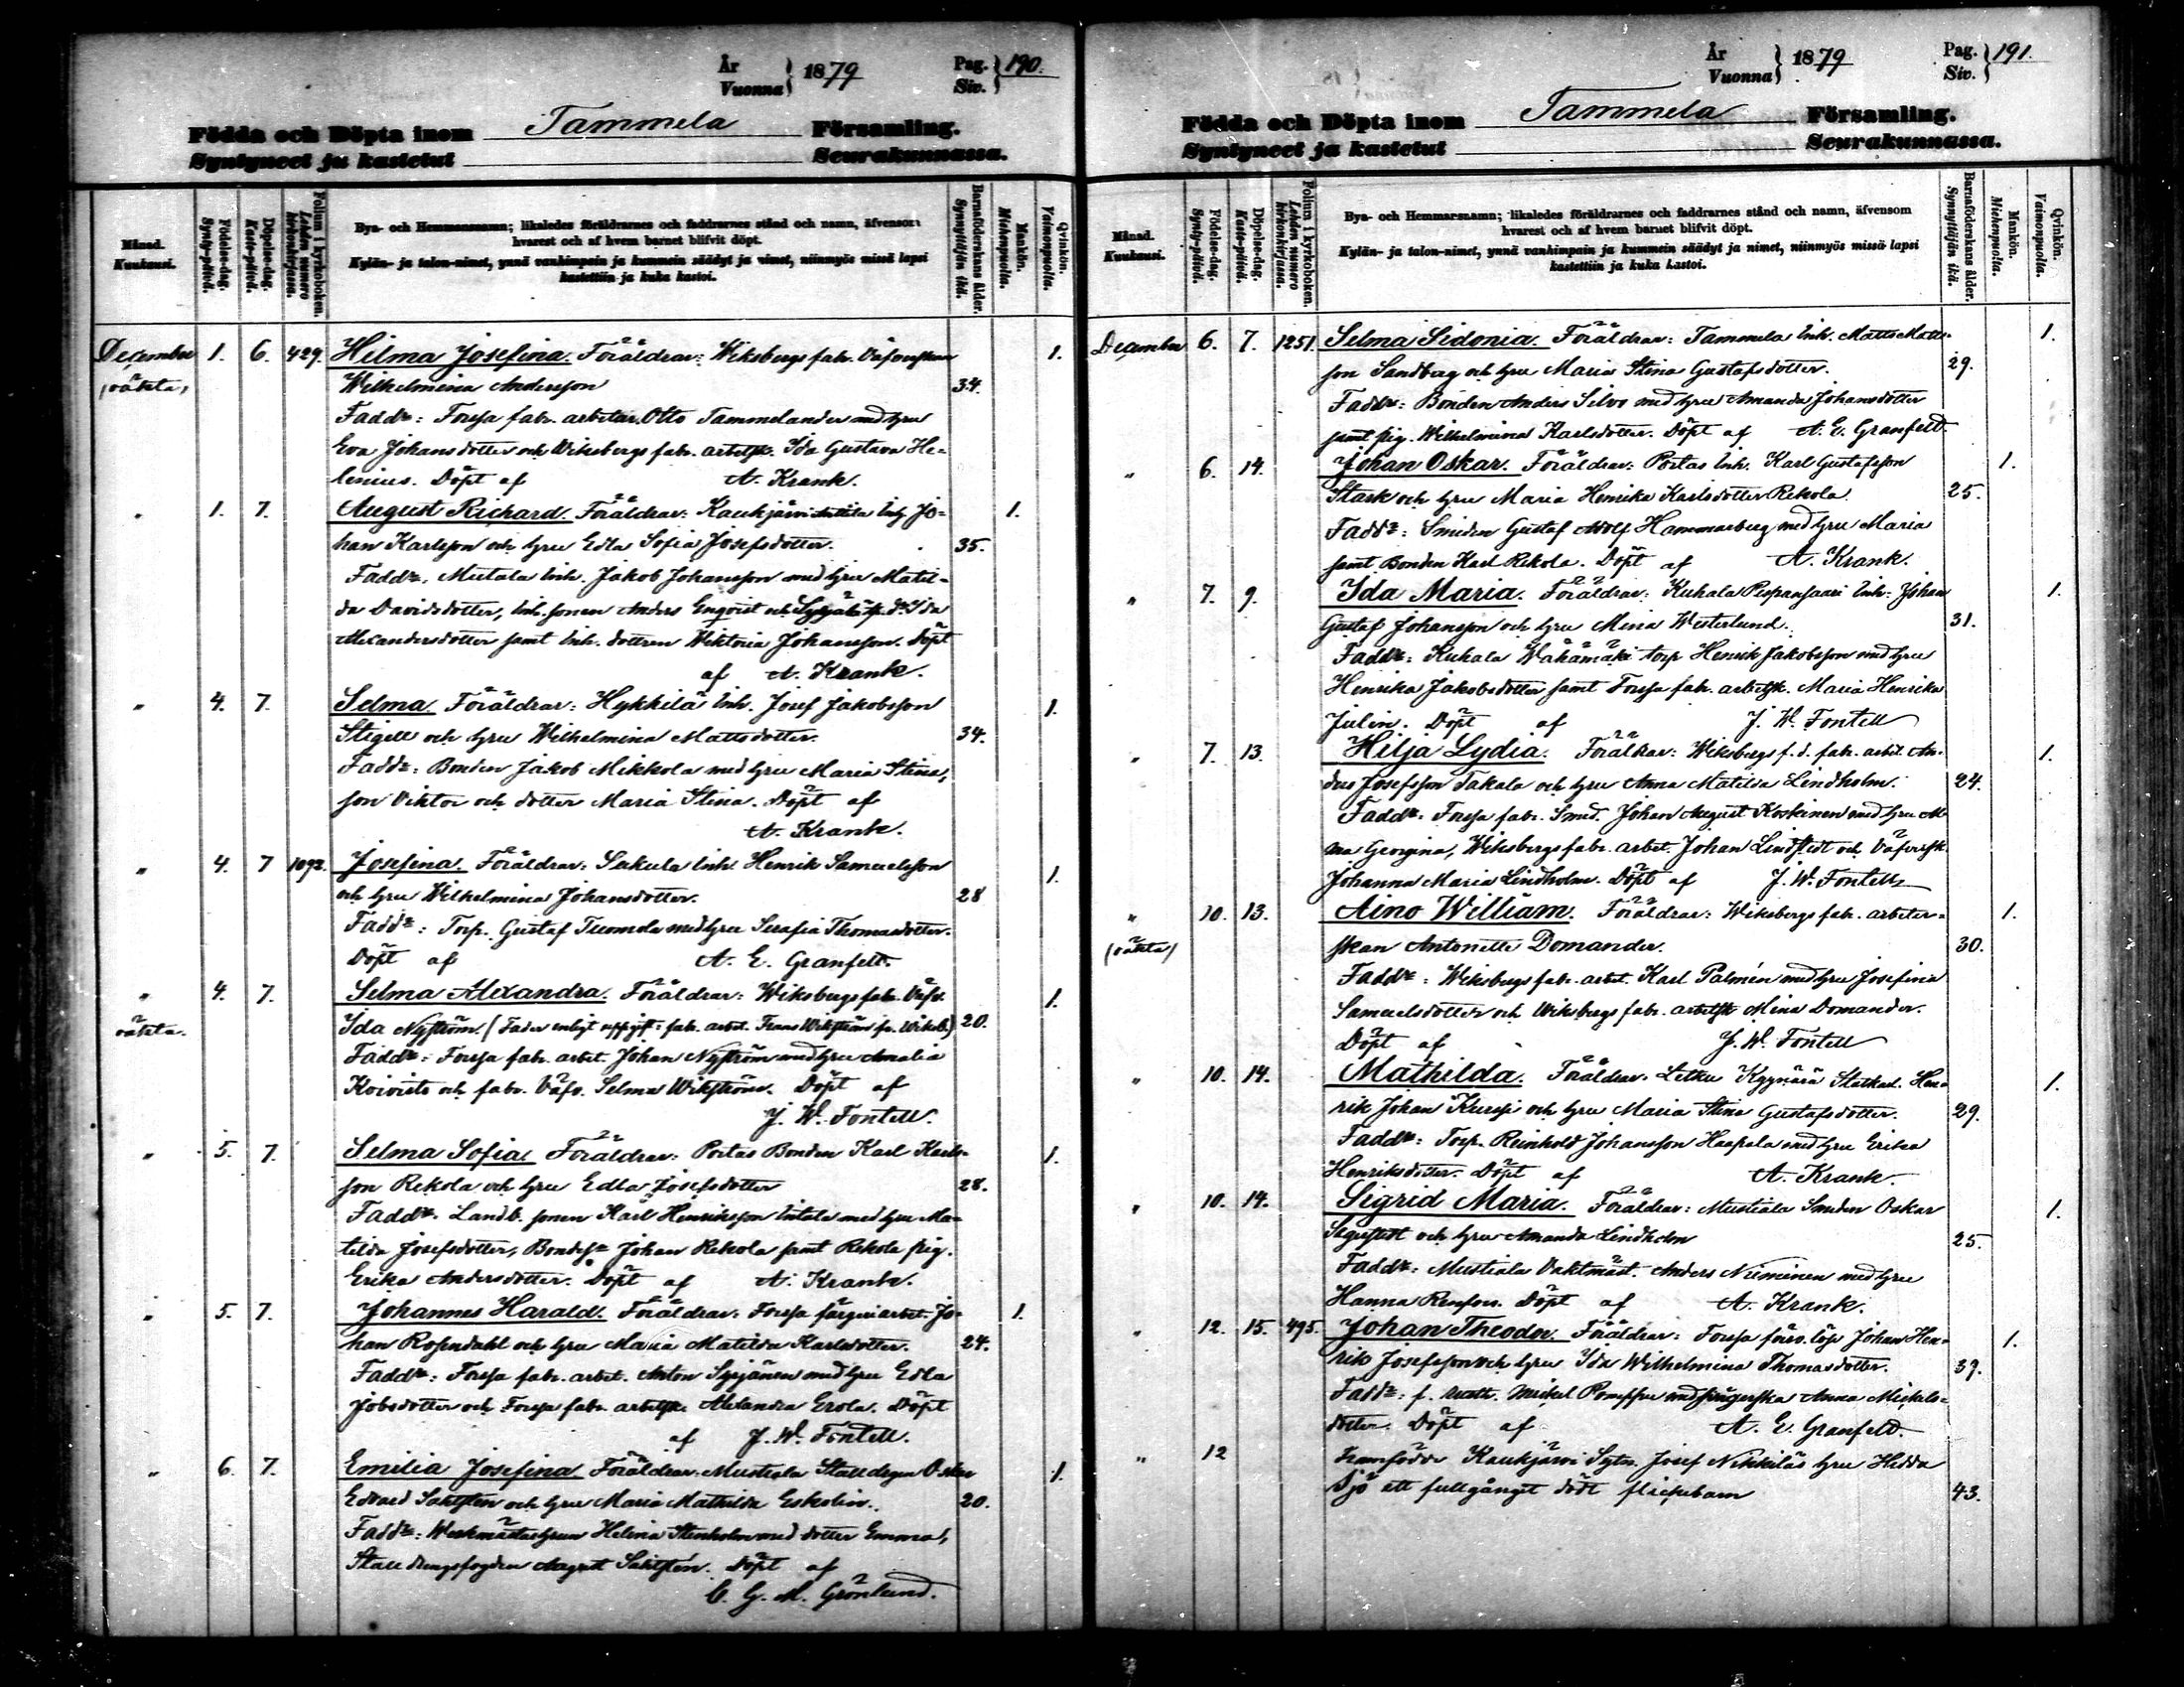 År
Vuonna } 1879
Pag.
Siv. } 190.
Födda och Döpta inom Tammela Församling.
Syntyneet ja kastetut Seurakunnassa.
Månad.
Kuukausi.
Födelse-dag.
Synty-päivä.
Döpelse-dag.
Kaste-päivä.
Folium i kyrkoboken.
Lehden numero kirkonkirjassa.
Bya- och Hemmansnamn; likaledes föräldrarnes och faddrarnes stånd och namn, äfvensom
hvarest och af hvem barnet blifvit döpt.
Kylän- ja talon-nimet, ynnä vanhimpain ja kummein säädyt ja nimet, niinmyös missä lapsi
kastettiin ja kuka kastoi.
Barnaföderskans ålder.
Synnyttäjän ikä.
Mankön.
Miehenpuolta.
Qvinkön.
Vaimonpuolta.
December 1. 6. 429. Hilma Josefina. Föräldrar: Wiksbergs fabr. Väfverskan 1.
(oäkta) Wilhelmina Andersson 34.
Fadd:r: Forssa fabr. arbetar. Otto Tammelander med hru
Eva Johansdotter och Wiksbergs fabr. arbetsk. Ida Gustava He-
lenius. Döpt af A. Krank.
" 1. 7. August Richard. Föräldrar: Kaukjärvi Inh. Jo- 1.
han Karlsson och hru Edla Sofia Josefsdotter. 35.
Fadd:r. Mustala Inh. Jakob Johansson med hru Matil-
da Davidsdotter, Inh. sonen Anders Enqvist och Ida
Alexandersdotter samt Inh. dottren Wiktoria Johansson. Döpt
af A. Krank.
" 4. 7. Selma. Föräldrar: Hykkilä Inh. Josef Jakobsson 1.
Stigell och hru Wilhelmina Mattsdotter. 34.
Fadd:r: Bonden Jakob Mikkola med hru Maria Stina,
son Viktor och dotter Maria Stina. Döpt af
A. Krank.
" 4. 7 1092. Josefina. Föräldrar: Sukula Inh. Henrik Samuelsson 1.
och hru Wilhelmina Johansdotter. 28
Fadd:r: Torp. Gustaf Tuomola med hru Serafia Thomasdotter.
Döpt af A. E. Granfelt.
" 4. 7. Selma Alexandra. Föräldrar: Wiksbergs fabr. Väfv. 1.
oäkta. Ida Nyström. (Fader enligt uppgift: fabr. arbet. Frans Wikström fr. Wiksb.) 20.
Fadd:r: Forssa fabr. arbet. Johan Nyström med hru Amalia
Koivisto och fabr. Väfv. Selma Wikström. Döpt af
J. W. Fontell.
" 5. 7. Selma Sofia. Föräldrar: Portas Bonden Karl Karls- 1.
son Rekola och hru Edla Josefsdotter 28.
Fadd:r. Landb. sonen Karl Henriksson Intala med hru Ma-
tilda Josefsdotter, Bondes:n Johan Rekola samt Rekola pig.
Erika Andersdotter. Döpt af A. Krank.
" 5. 7. Johannes Harald. Föräldrar: Forssa färgeri arbet. Jo- 1.
han Rosendahl och hru Maria Matilda Karlsdotter. 24.
Fadd:r: Forssa fabr. arbet. Anton Syrjänen med hru Edla
Jobsdotter och Forssa fabr. arbetsk. Alexandra Erola. Döpt
af J. W. Fontell.
" 6. 7. Emilia Josefina Föräldrar: Mustiala Stalldrgen Oskar 1.
Edvard Sahlstén och hru Maria Mathilda Eskolin. 20.
Fadd:r: Werkmästarehrun Helena Stenholm med dotter Emma,
Stalldrengsfogden August Sahlstén. Döpt af
C. G. M. Grönlund.
År
Vuonna } 1879
Pag.
Siv. } 191.
Födda och Döpta inom Tammela Församling.
Syntyneet ja kastetut Seurakunnassa.
Månad.
Kuukausi.
Födelse-dag.
Synty-päivä.
Döpelse-dag.
Kaste-päivä.
Folium i kyrkoboken.
Lehden numero kirkonkirjassa.
Bya- och Hemmansnamn; likaledes föräldrarnes och faddrarnes stånd och namn, äfvensom
hvarest och af hvem barnet blifvit döpt.
Kylän- ja talon-nimet, ynnä vanhimpain ja kummein säädyt ja nimet, niinmyös missä lapsi
kastettiin ja kuka kastoi.
Barnaföderskans ålder.
Synnyttäjän ikä.
Mankön.
Miehenpuolta.
Qvinkön.
Vaimonpuolta.
December 6. 7. 1251. Selma Sidonia. Föräldrar: Tammela Inh. Matts Matts- 1.
son Sandberg och hru Maria Stina Gustafsdotter. 29.
Fadd:r: Bonden Anders Silvo med hru Amanda Johansdotter
samt pig. Wilhelmina Karlsdotter. Döpt af A. E. Granfelt.
" 6. 14. Johan Oskar. Föräldrar: Portas Inh. Karl Gustafsson 1.
Stark och hru Maria Henrika Karlsdotter Rekola. 25.
Fadd:r: Smeden Gustaf Adolf Hammarberg med hru Maria
samt Bonden Karl Rekola. Döpt af A. Krank.
" 7. 9. Ida Maria. Föräldrar: Kuhala Pispansaari Inh. Johan 1.
Gustaf Johansson och hru Mina Westerlund. 31.
Fadd:r: Kuhala Wahämäki torp. Henrik Jakobsson med hru
Henrika Jakobsdotter samt Forssa fabr. arbetsk. Maria Henrika
Julin. Döpt af J. W. Fontell
" 7. 13. Hilja Lydia. Föräldrar: Wiksbergs f.d. fabr. arbet. An- 1.
ders Josefsson Takala och hru Anna Matilda Lindholm. 24.
Fadd:r: Forssa fabr. Smed. Johan August Koskinen med hru Al-
ma Georgina, Wiksbergs fabr. arbet. Johan Lindstedt och Väfversk.
Johanna Maria Lindholm. Döpt af J. W. Fontell
" 10. 13. Aino William. Föräldrar: Wiksbergs fabr. arbeter- 1.
(oäkta) skan Antonette Domander. 30.
Fadd:r: Wiksbergs fabr. arbet. Karl Palmén med hru Josefina
Samuelsdotter och Wiksbergs fabr. arbetsk Mina Domander.
Döpt af J. W. Fontell
" 10. 14. Mathilda. Föräldrar. Letku Kyynärä Statkarl. Hen- 1.
rik Johan Kurssi och hru Maria Stina Gustafsdotter. 29.
Fadd:r: Torp. Reinhold Johansson Haapala med hru Erika
Henriksdotter. Döpt af A. Krank.
" 10. 14. Sigrid Maria. Föräldrar: Mustiala Smeden Oskar 1.
Segerstedt och hru Amanda Lindholm 25.
Fadd:r: Mustiala Vaktmäst. Anders Nieminen med hru
Hanna Renfors. Döpt af A. Krank.
" 12. 15. 495. Johan Theodor. Föräldrar: Forssa förv. lös. Johan Hen- 1.
rik Josefsson och hru Ida Wilhelmina Thomasdotter. 39.
Fadd:r: f. Mickel med Anna Mickels-
dotter. Döpt af A. E. Granfelt.
" 12 Framfödde Kaukjärvi Sytn. Josef Nikkiläs hru Hedda
Sjö ett fullgånget dödt flickebarn 43.